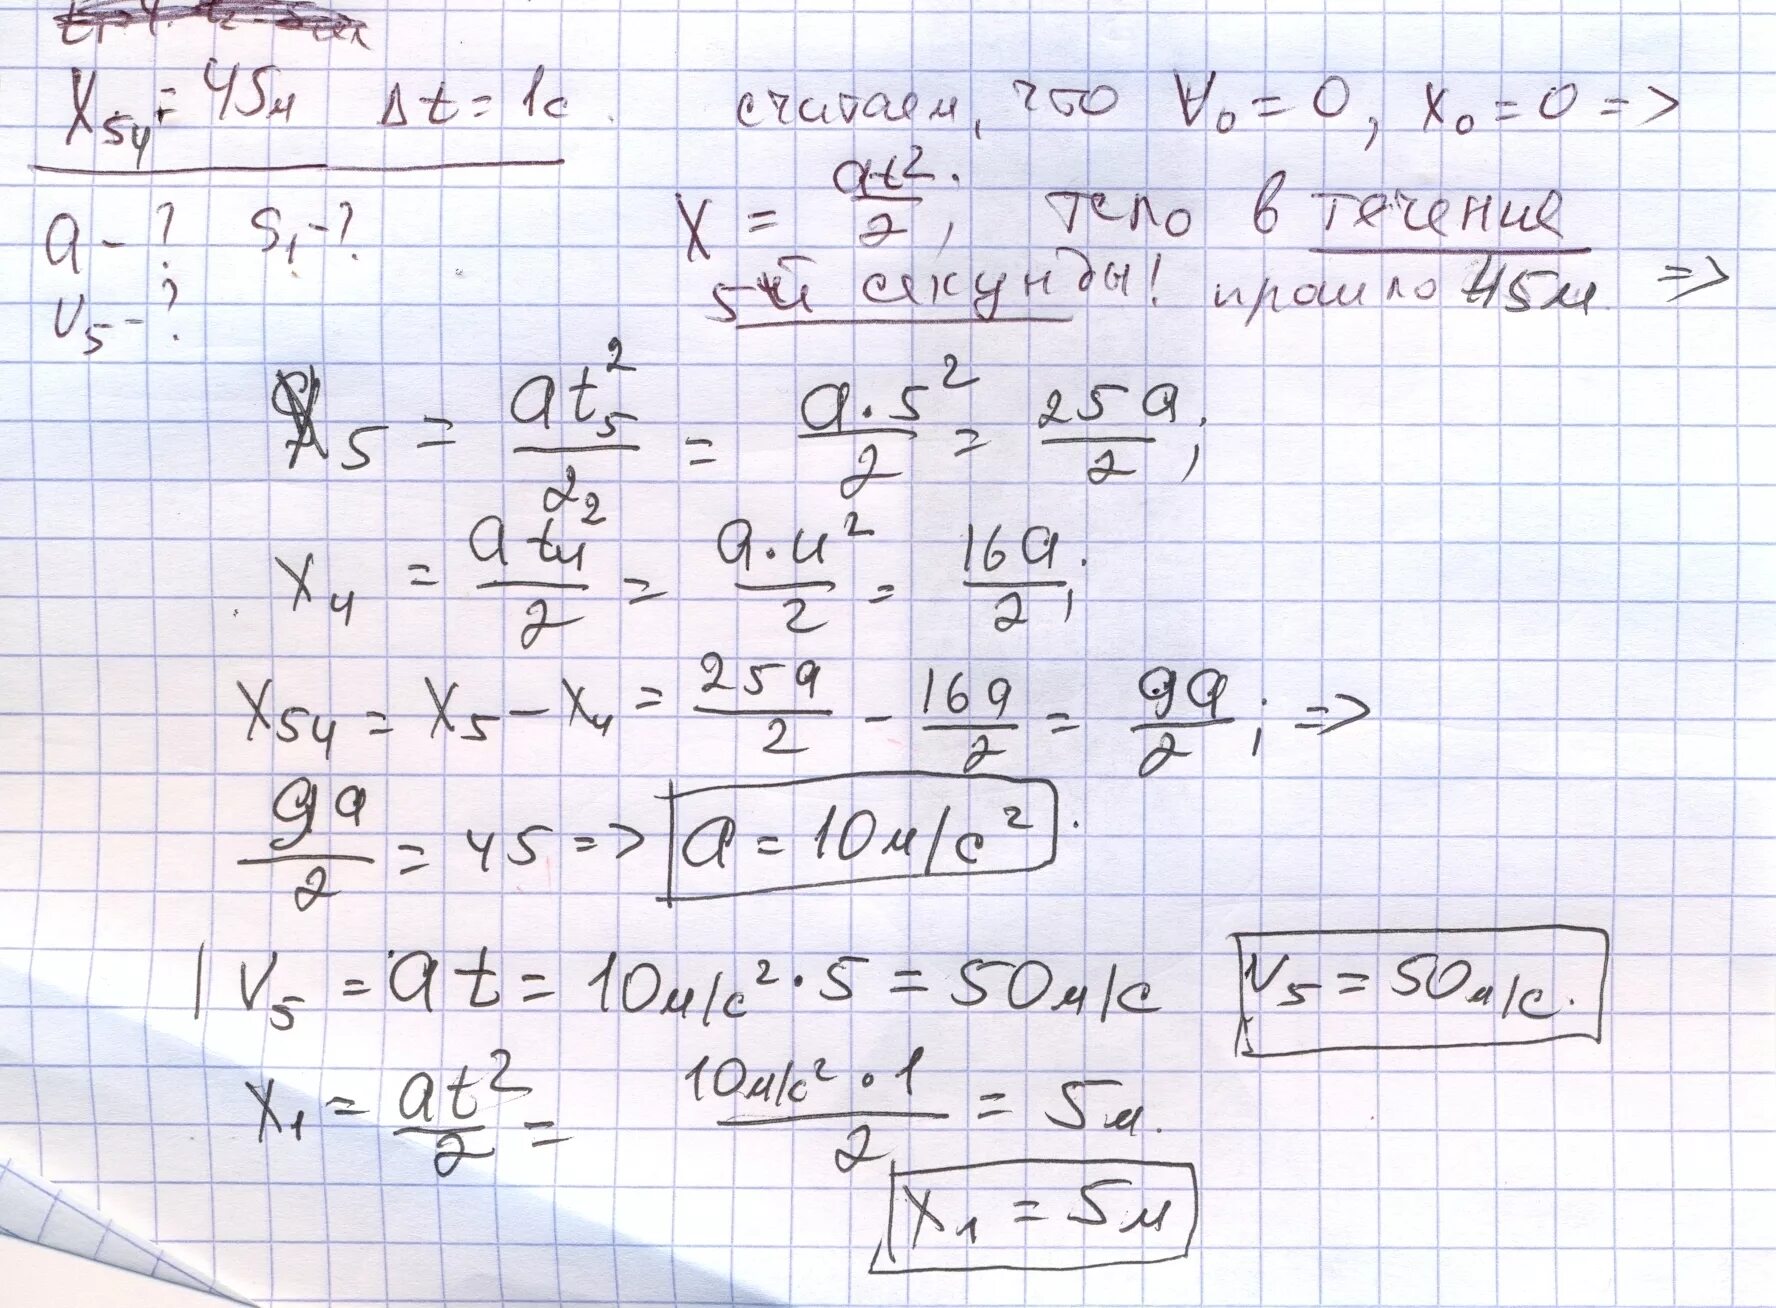 X₅₄ = 45м Δt = 1с. считаем, что V₀ = 0, x₀ = 0 =>
a - ? S₁ - ? X = at²/2, тело в течение
V₅ - ? 5ый секунды! прошло 45м =>
X₅ = at₅²/2 = a·5²/2 = 25a/2;
X₄ = at₄²/2 = a·4²/2 = 16a/2;
X₅₄ = X₅ - X₄ = 25a/2 - 16a/2 = 9a/2; =>
9a/2 = 45 => a = 10м/с².
V₅ = at = 10м/с²·5 = 50м/с V₅ = 50м/с.
X₁ = at²/2 = 10м/с²·1/2 = 5м.
X₁ = 5м